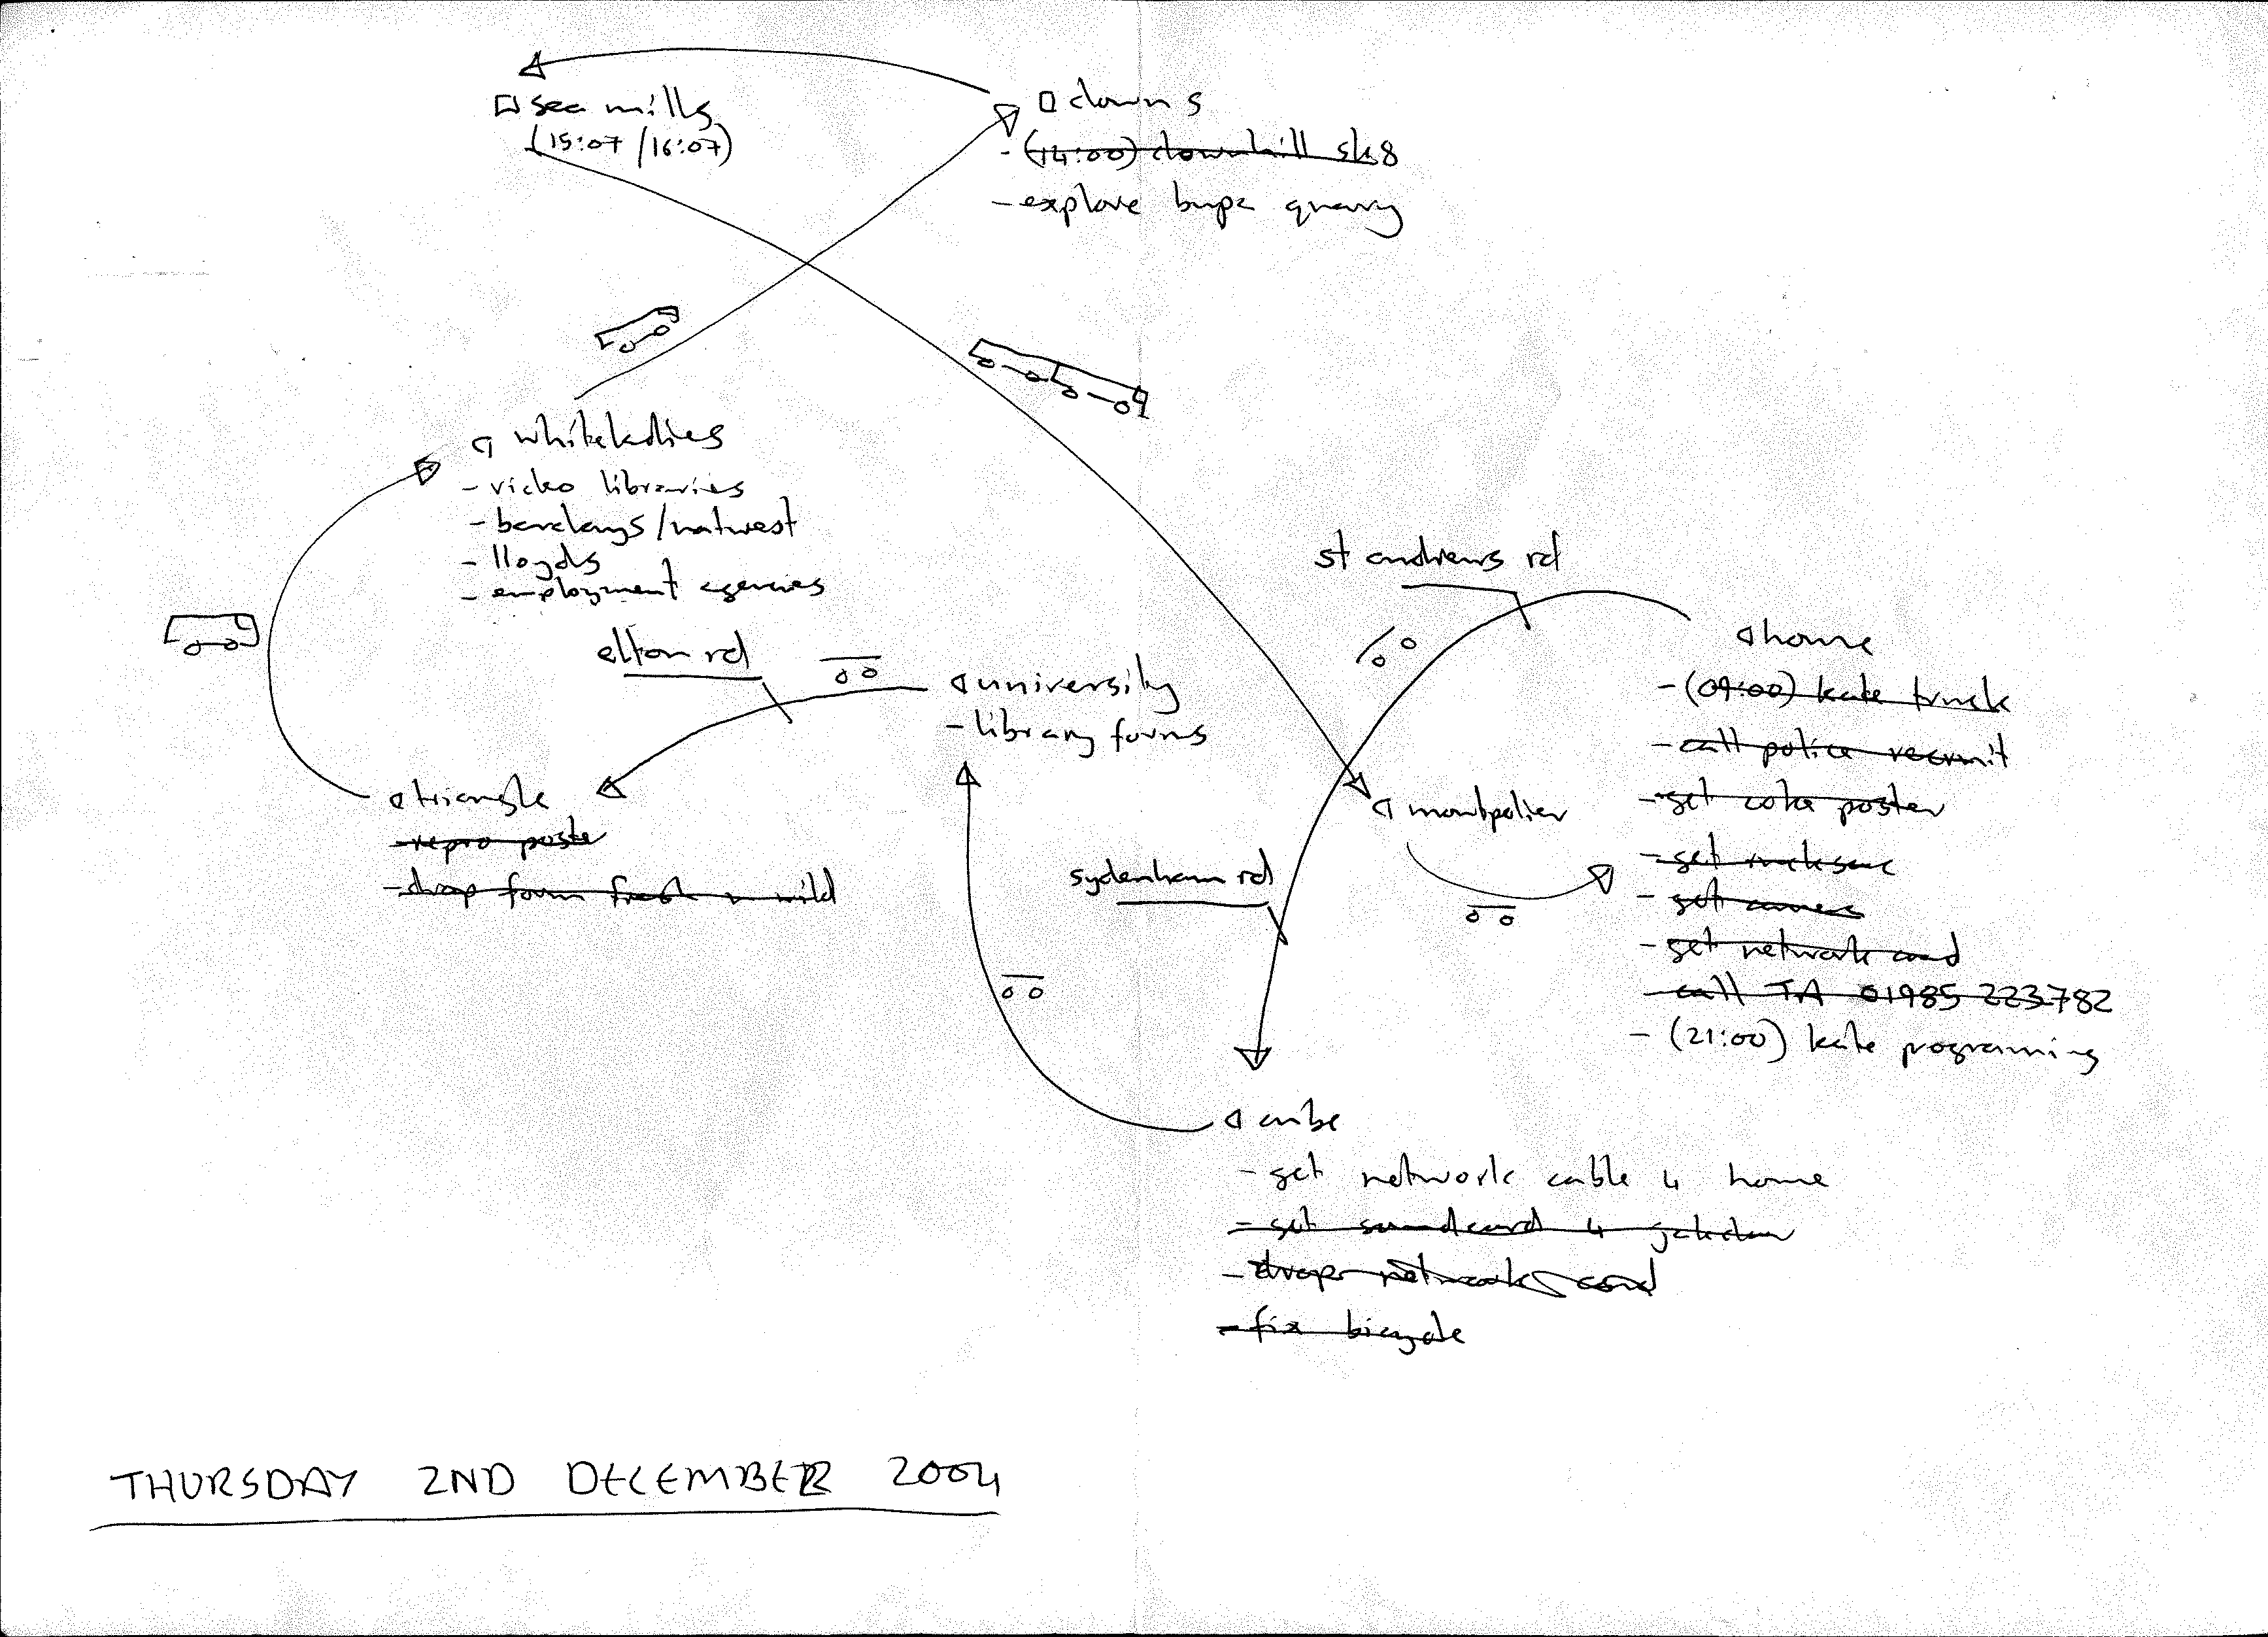 sea mills
(15:07 / 16:07)
downs
- (14:00) downhill sk8
- explore bupa quarry
whiteladies
- video libraries
- barclays/natwest
- lloyds
- employment agencies
st andrews rd
elton rd
university
- library forms
home
- (09:00) kate truck
- call police recruit
- get coke poster
- get rucksac
- get camera
- get network card
- call TA 01985 223782
- (21:00) kate programing
triangle
- repro poster
- drop form fresh n wild
montpelier
sydenham rd
cube
- get network cable 4 home
- get soundcard 4
- drop network card
- fix bicycle
THURSDAY 2ND DECEMBER 2004